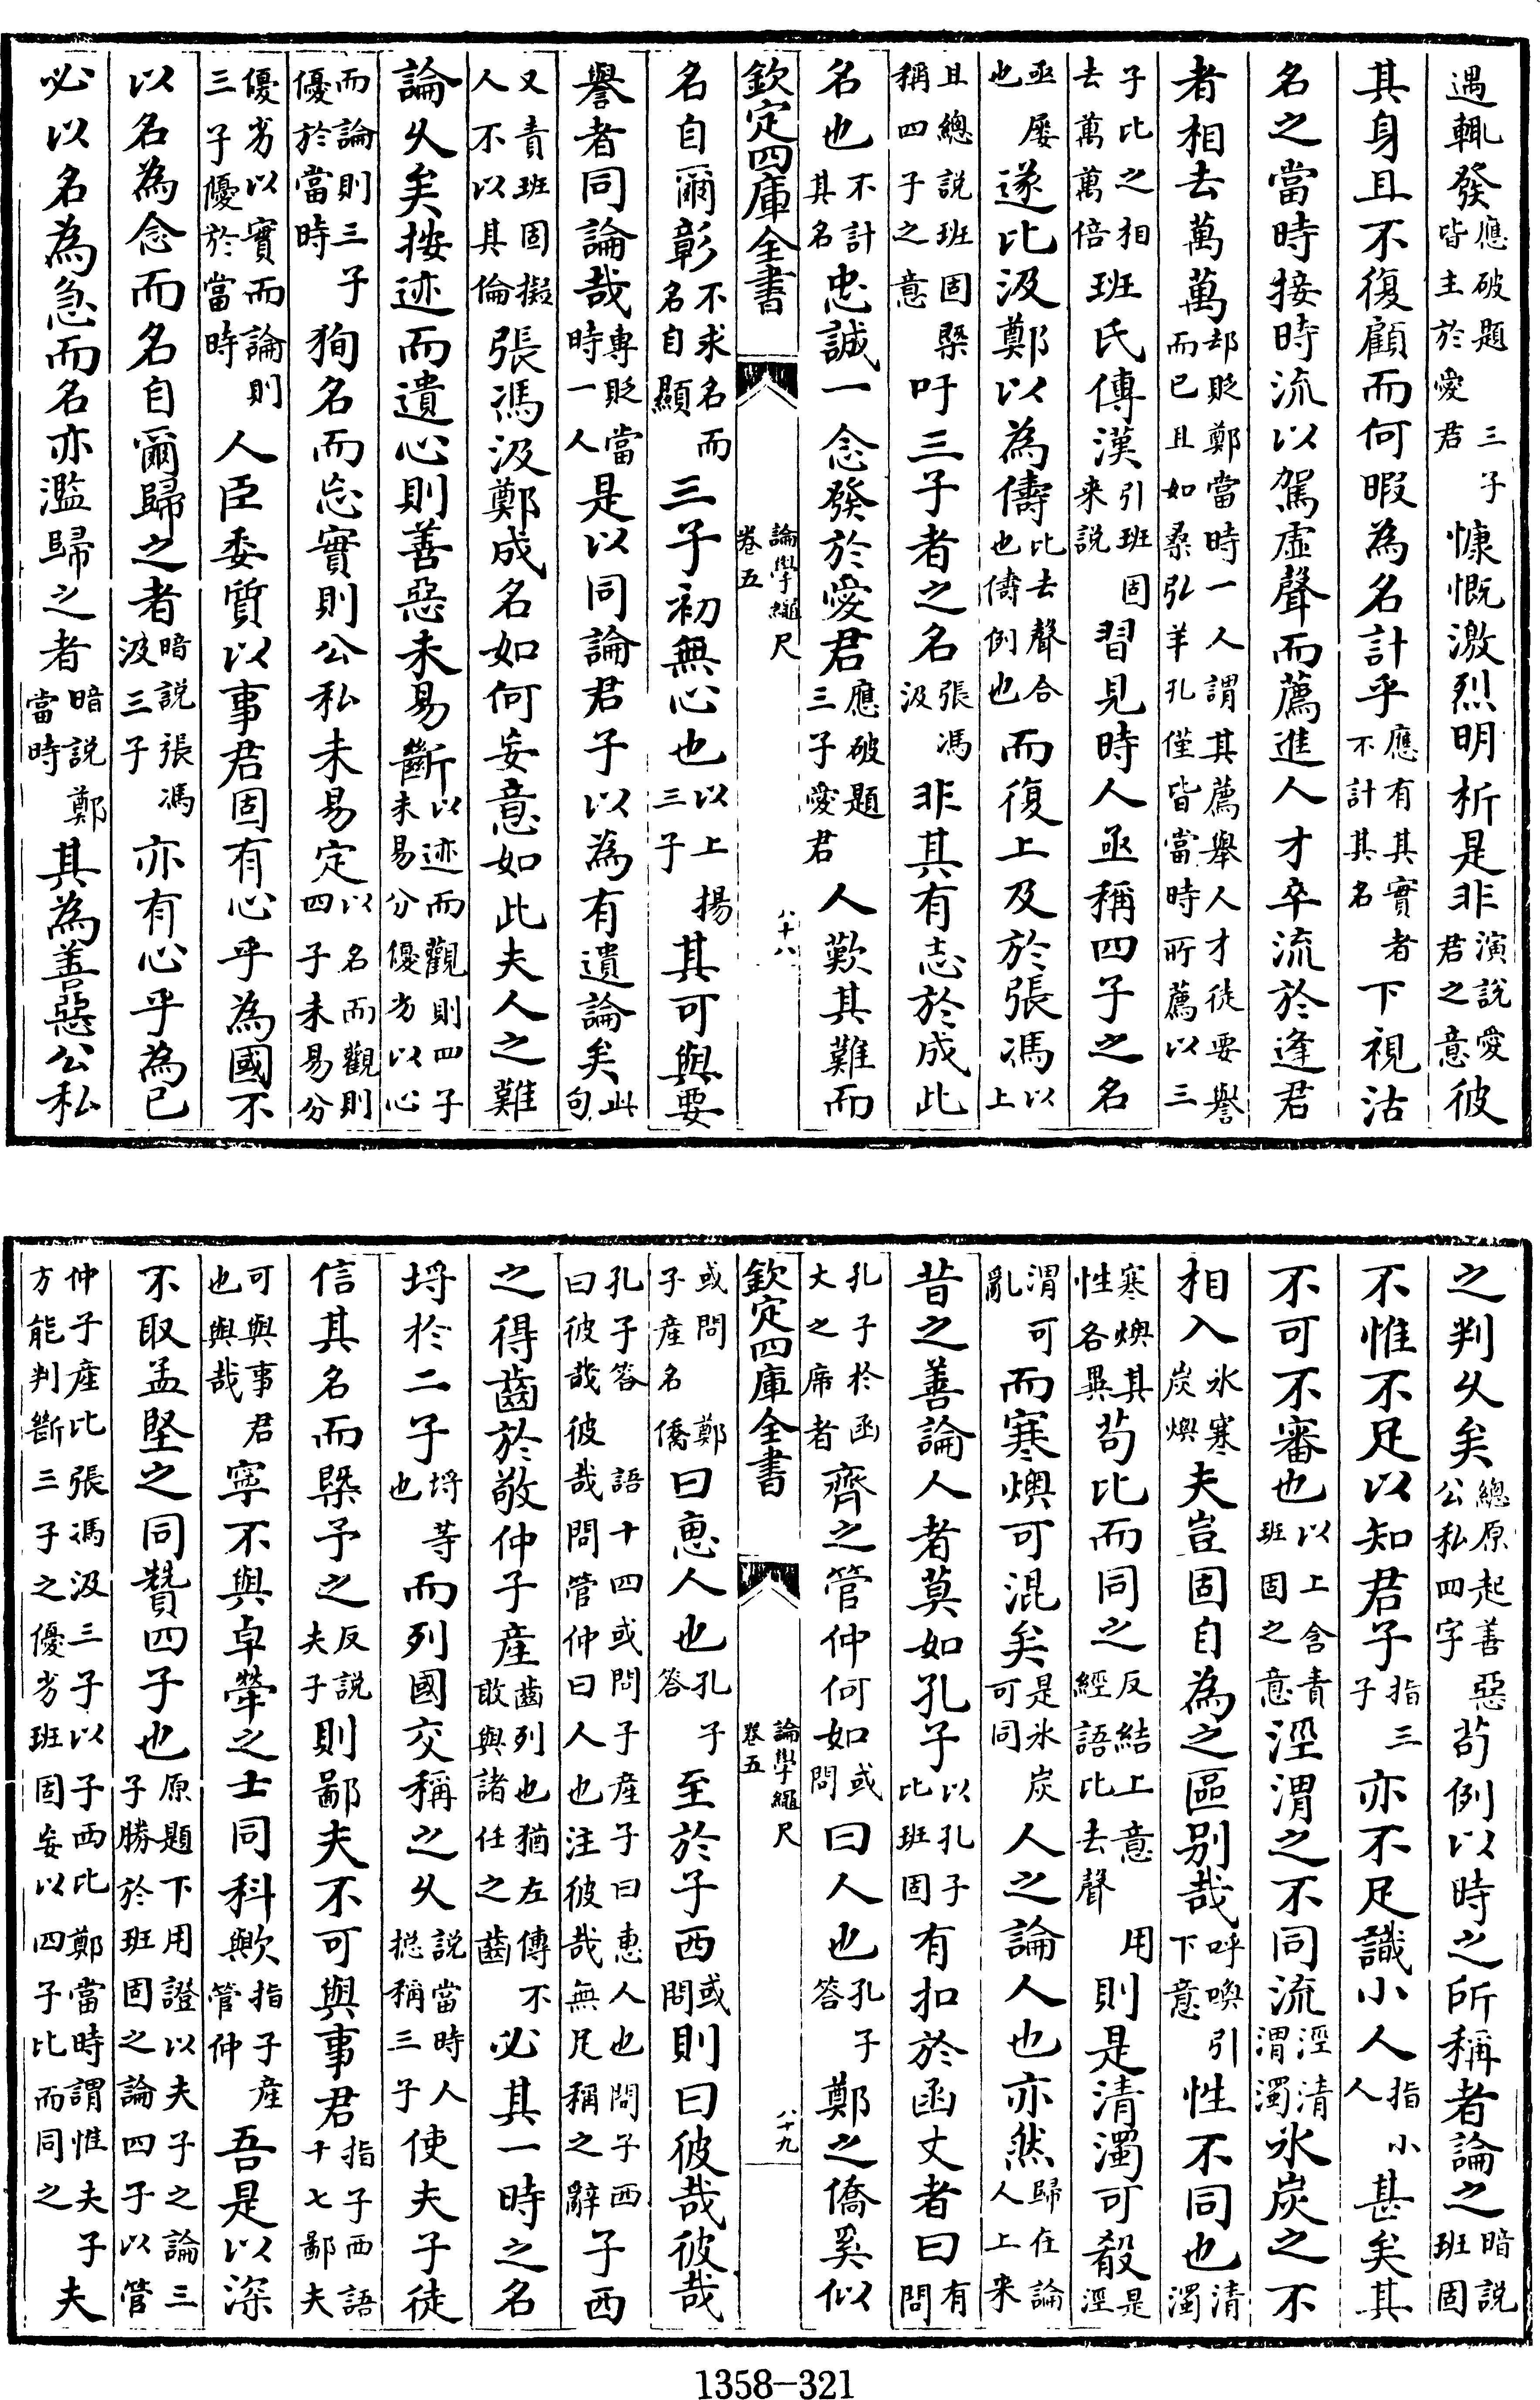 遇輒發應破題三子皆主於愛君慷慨激烈明析是非演説愛君之意彼
其身且不復顧而何暇為名計乎應有其實者不計其名下視沽
名之當時接時流以駕虛聲而薦進人才卒流於逢君
者相去萬萬却貶鄭當時一人謂其薦舉人才徒要譽而已且如桑弘羊孔僅皆當時所薦以三
子比之相去萬萬倍班氏傳漢引班固来説習見時人亟稱四子之名
亟屢也遂比汲鄭以為儔比去聲合也儔例也而復上及於張馮以上
且總説班固槩稱四子之意吁三子者之名張馮汲非其有志於成此
名也不計其名忠誠一念發於愛君應破題三子愛君人歎其難而
欽定四庫全書 論學繩尺 卷五 八十八
名自爾彰不求名而名自顯三子初無心也以上揚三子其可與要
譽者同論哉專貶當時一人是以同論君子以為有遺論矣此句
又責班固擬人不以其倫張馮汲鄭成名如何妄意如此夫人之難
論乆矣按迹而遺心則善惡未易斷以迹而觀則四子未易分優劣以心
而論則三子優於當時狥名而忘實則公私未易定以名而觀則四子未易分
優劣以實而論則三子優於當時人臣委質以事君固有心乎為國不
以名為念而名自爾歸之者暗説張馮汲三子亦有心乎為已
必以名為急而名亦濫歸之者暗説鄭當時其為善惡公私
之判乆矣總原起善惡公私四字茍例以時之所稱者論之暗説班固
不惟不足以知君子指三子亦不足識小人指小人甚矣其
不可不審也以上含責班固之意涇渭之不同流涇清渭濁氷炭之不
相入氷寒炭燠夫豈固自為之區别哉呼喚引下意性不同也清濁
寒燠其性各異茍比而同之反結上意經語比去聲用則是清濁可殽是涇
渭可亂而寒燠可混矣是氷炭可同人之論人也亦然歸在論人上来
昔之善論人者莫如孔子以孔子比班固有扣於函丈者曰有問
孔子於函丈之席者齊之管仲何如或問曰人也孔子答鄭之僑奚似
欽定四庫全書 論學繩尺 卷五 八十九
或問鄭子產名僑曰恵人也孔子答至於子西或問則曰彼哉彼哉
孔子答曰彼哉彼哉語十四或問子產子曰恵人也問子西曰彼哉彼哉問管仲曰人也注彼哉無足稱之辭子西
之得齒於敬仲子產齒列也猶左傳不敢與諸任之齒必其一時之名
埒於二子埒等也而列國交稱之乆説當時人摠稱三子使夫子徒
信其名而槩予之反説夫子則鄙夫不可與事君指子西語十七鄙夫
可與事君也與哉寜不與卓犖之士同科歟指子產管仲吾是以深
不取孟堅之同贊四子也原題下用證以夫子之論三子勝於班固之論四子以管
仲子產比張馮汲三子以子西比鄭當時謂惟夫子方能判斷三子之優劣班固妄以四子比而同之夫
1358-321